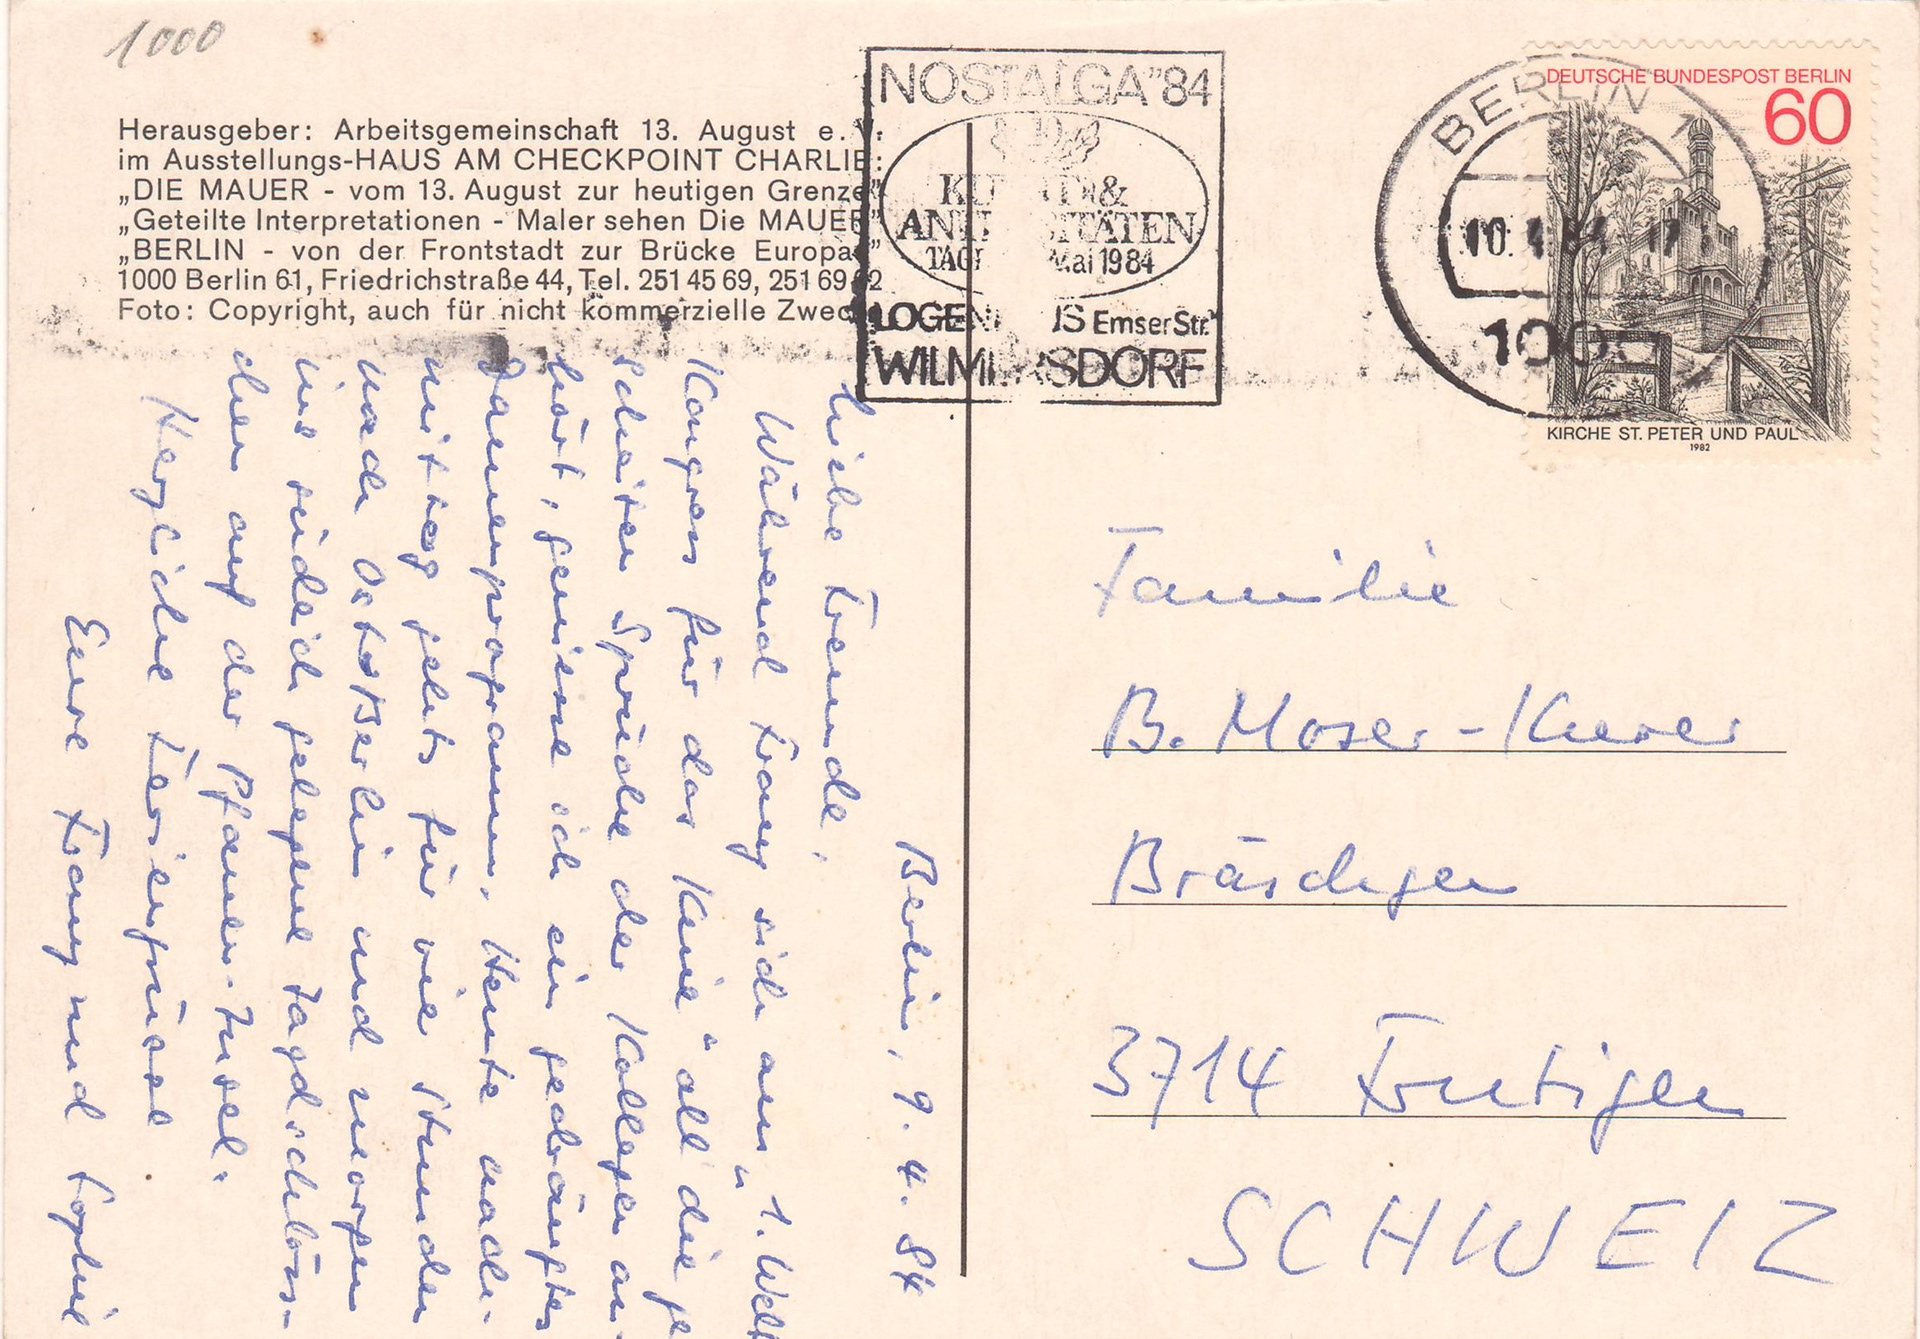 1000
Herausgeber: Arbeitsgemeinschaft 13. August e. V.:
im Ausstellungs-HAUS AM CHECKPOINT CHARLIE:
„DIE MAUER - vom 13. August zur heutigen Grenze"
„Geteilte Interpretationen - Maler sehen Die MAUER"
„BERLIN - von der Frontstadt zur Brücke Europas"
1000 Berlin 61, Friedrichstraße 44, Tel. 251 45 69, 251 69 02
Foto: Copyright, auch für nicht kommerzielle Zwecke
NOSTALGA"84
&
TÄTEN
Mai 1984
Emser Str.
WILM SDORF
BERLIN
10. 4. 84 17
1000
DEUTSCHE BUNDESPOST BERLIN
60
KIRCHE ST. PETER UND PAUL
1982
Berlin, 9. 4. 84
Liebe Freunde,
Während Franz sich am "1. Welt
Kongress für das Knie" all die ge
scheiten Sprüche der Kollegen an-
hört, geniesse ich ein gedrängtes
Damenprogramm. Heute nach-
mittag gehts für vier Stunden
nach Ost-Berlin und morgen
ins reizend gelegene Jagdschlöss-
chen auf der Pfauen-Insel.
Herzliche Feriengrüsse
Eure Franz und Sophie
Familie
B. Moser-Kurer
Brüschgen
3714 Frutigen
SCHWEIZ